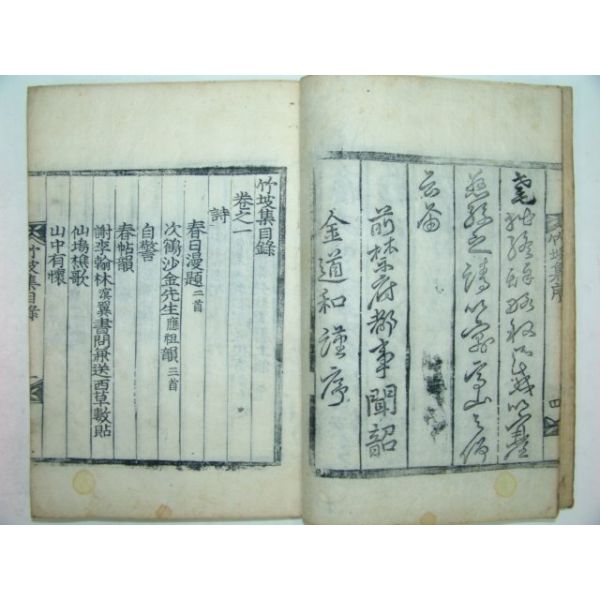 竹坡集序
四
慈孫之請以寓高山之仰
云爾
前禁府都事聞韶
金道和謹序
竹坡集目錄
卷之一
詩
春日漫題二首
次鶴沙金先生應祖韻三首
自警
春帖韻
謝李翰林溟翼書問兼送西草數貼
仙塢樵歌
山中有懷
竹坡集目錄
一